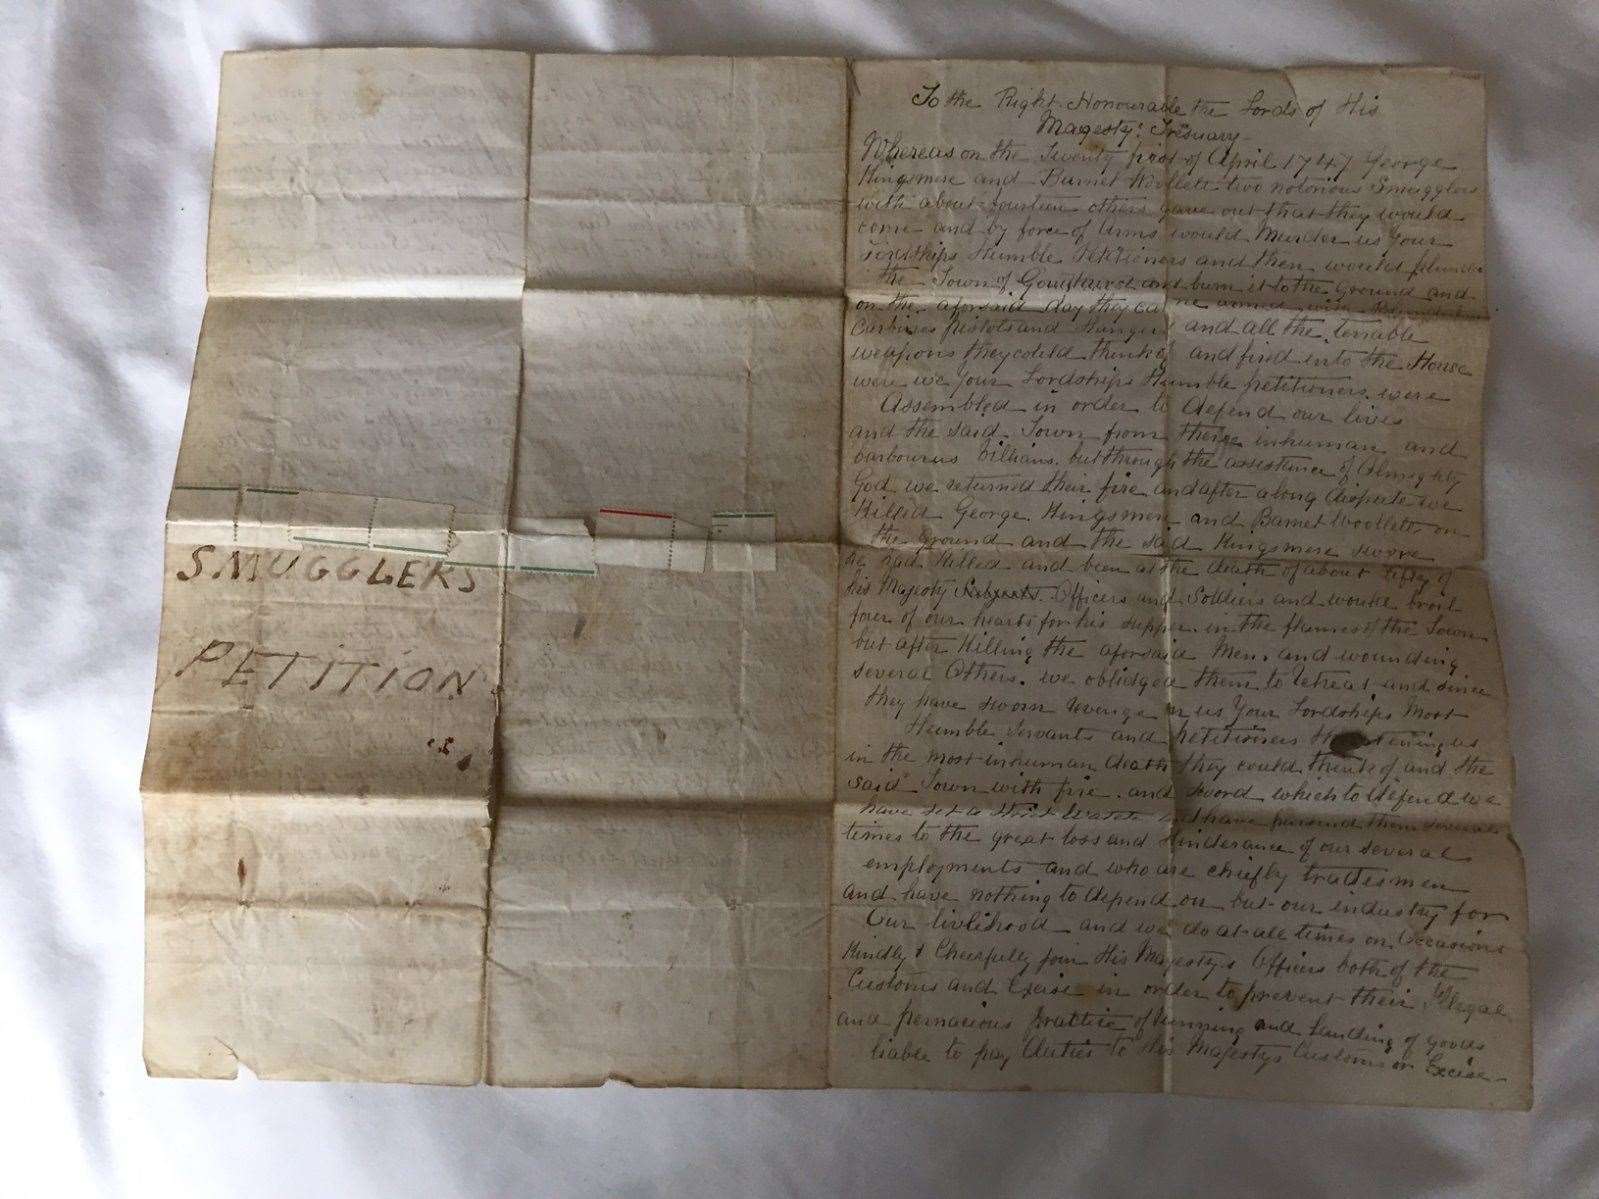 SMUGGLERS
PETITION
To the Right Honourable the Lords of His
Magesty: Tresuary
Whereas on the Twenty first of April 1747 George
Kingsmere and Barnet Woollett two notorious Smugglers
with about fourteen others gave out that they would
come and by force of Arms would Murder us Your
Lordships Humble Petitioners and then would plunder
the Town of Goudhurst and burn it to the ground and
on the aforsaid day they came armed with
Carbines pistols and Hangers and all the terrable
weapons they coteld think of and fired into the House
were we your Lordships Humble petitioners were
Assembled in order to defend our lives
and the said Town from these inhuman and
barbourus Villians. but through the assistence of Almighty
God we returned their fire and after a long dispute we
Killed George Kingsmere and Barnet Woollett on
the ground and the said Kingsmere swore
he had Killed and been at the death of about fifty of
his Majesty Subjects Officers and Soldiers and would broil
four of our hearts for his supper in the flames of the Town
but after Killing the aforsaid Men. and wounding
several Others. we oblidged them to retreat and since
they have sworn revenge on us Your Lordships Most
Humble Servants and petitioners us
in the most inhuman death they could think of and the
said Town with fire and sword which to defend we
have set a and have pursued them several
times to the great loss and Hinderance of our several
employments and who are chiefly tradesmen
and have nothing to depend on but our industry for
Our livlihood and we do at all times on Occasions
Kindly & Cheerfully join His Majestys Officers both of the
Customs and Excise in order to prevent their Illegal
and pernacious Prattice of Running and Landing of goods
liable to pay Duties to His Majestys Customs or Excise